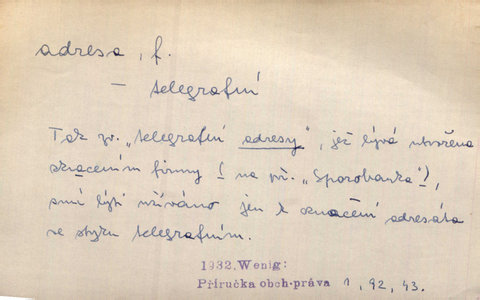 adresa, f.
– telegrafní
Tak zv. „telegrafní adresy", jež bývá utvořena
zkrácením firmy (na př. „Sporobanka"),
smí býti užíváno jen k označení adresáta
ve styku telegrafním.
1932, Wenig:
Příručka obch·práva 1, 92, 43.